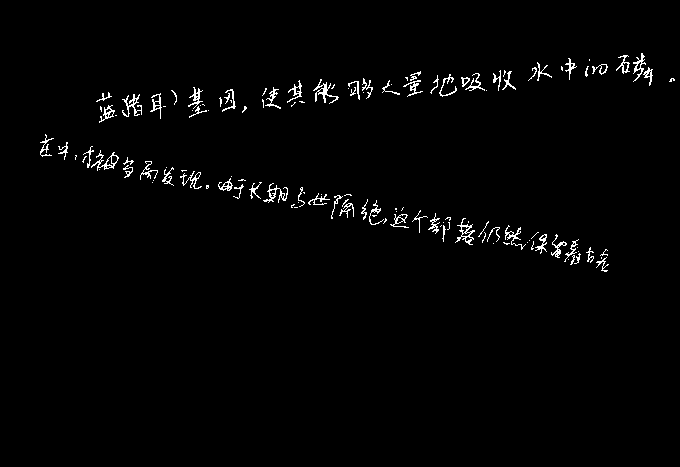 蓝猪耳)基因,使其能够大量地吸收水中的磷。
才被当局发现。由于长期与世隔绝,这个部落仍然保留着古老